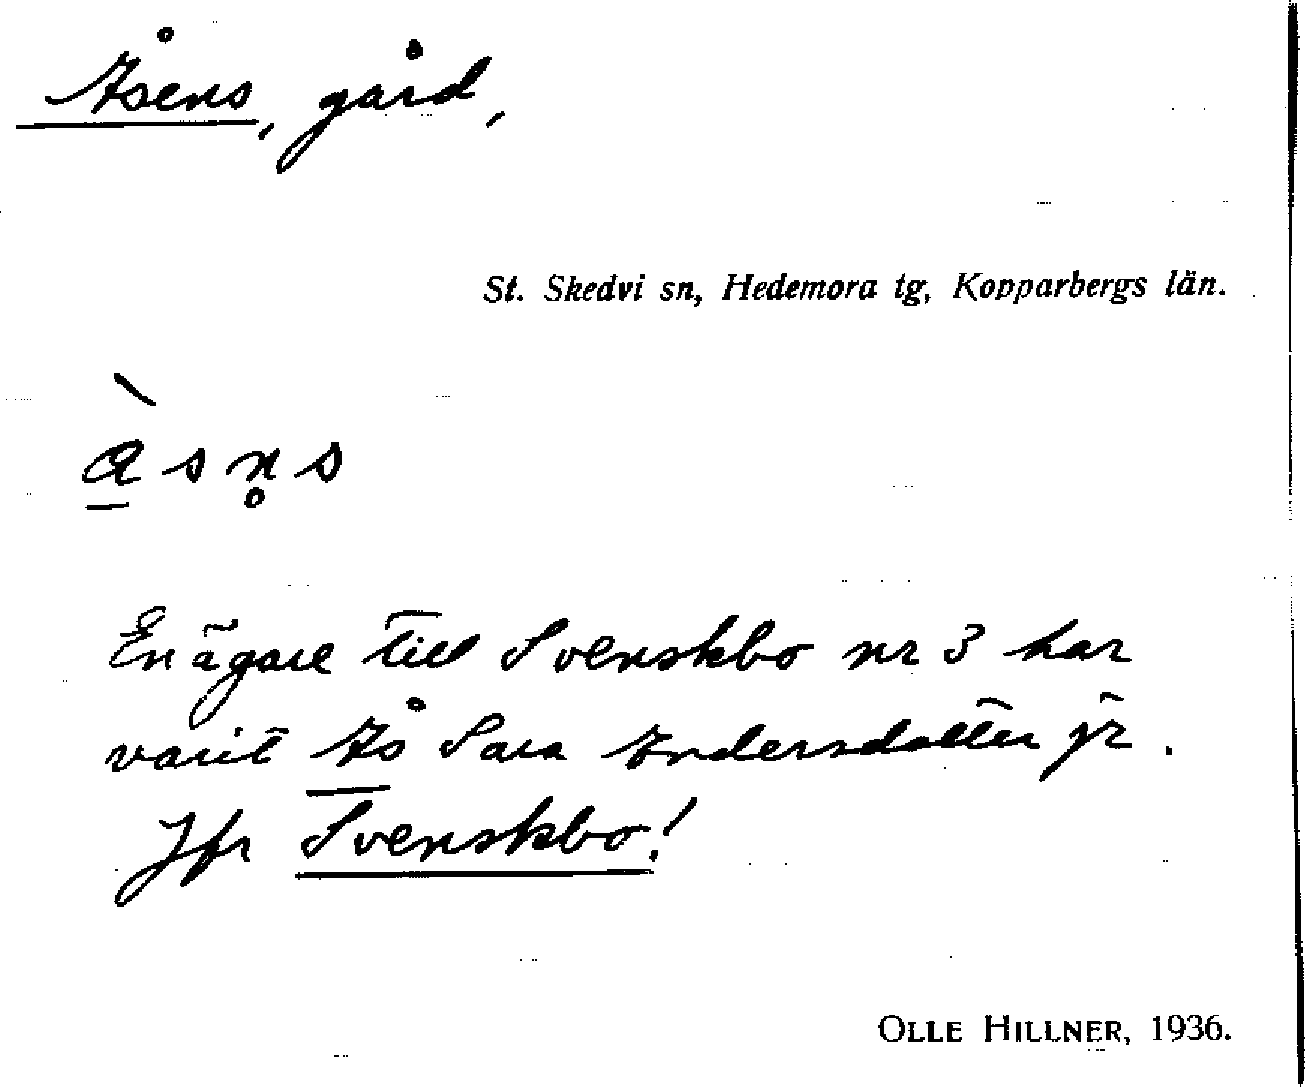 Åsens, gård,
St. Skedvi sn, Hedemora tg, Kopparbergs län.
à̱ s n̥ s
En ägare till Svenskbo nr 3 har
varit Ås Sara Andersdotter jr.
Jfr Svenskbo!
OLLE HILLNER, 1936.